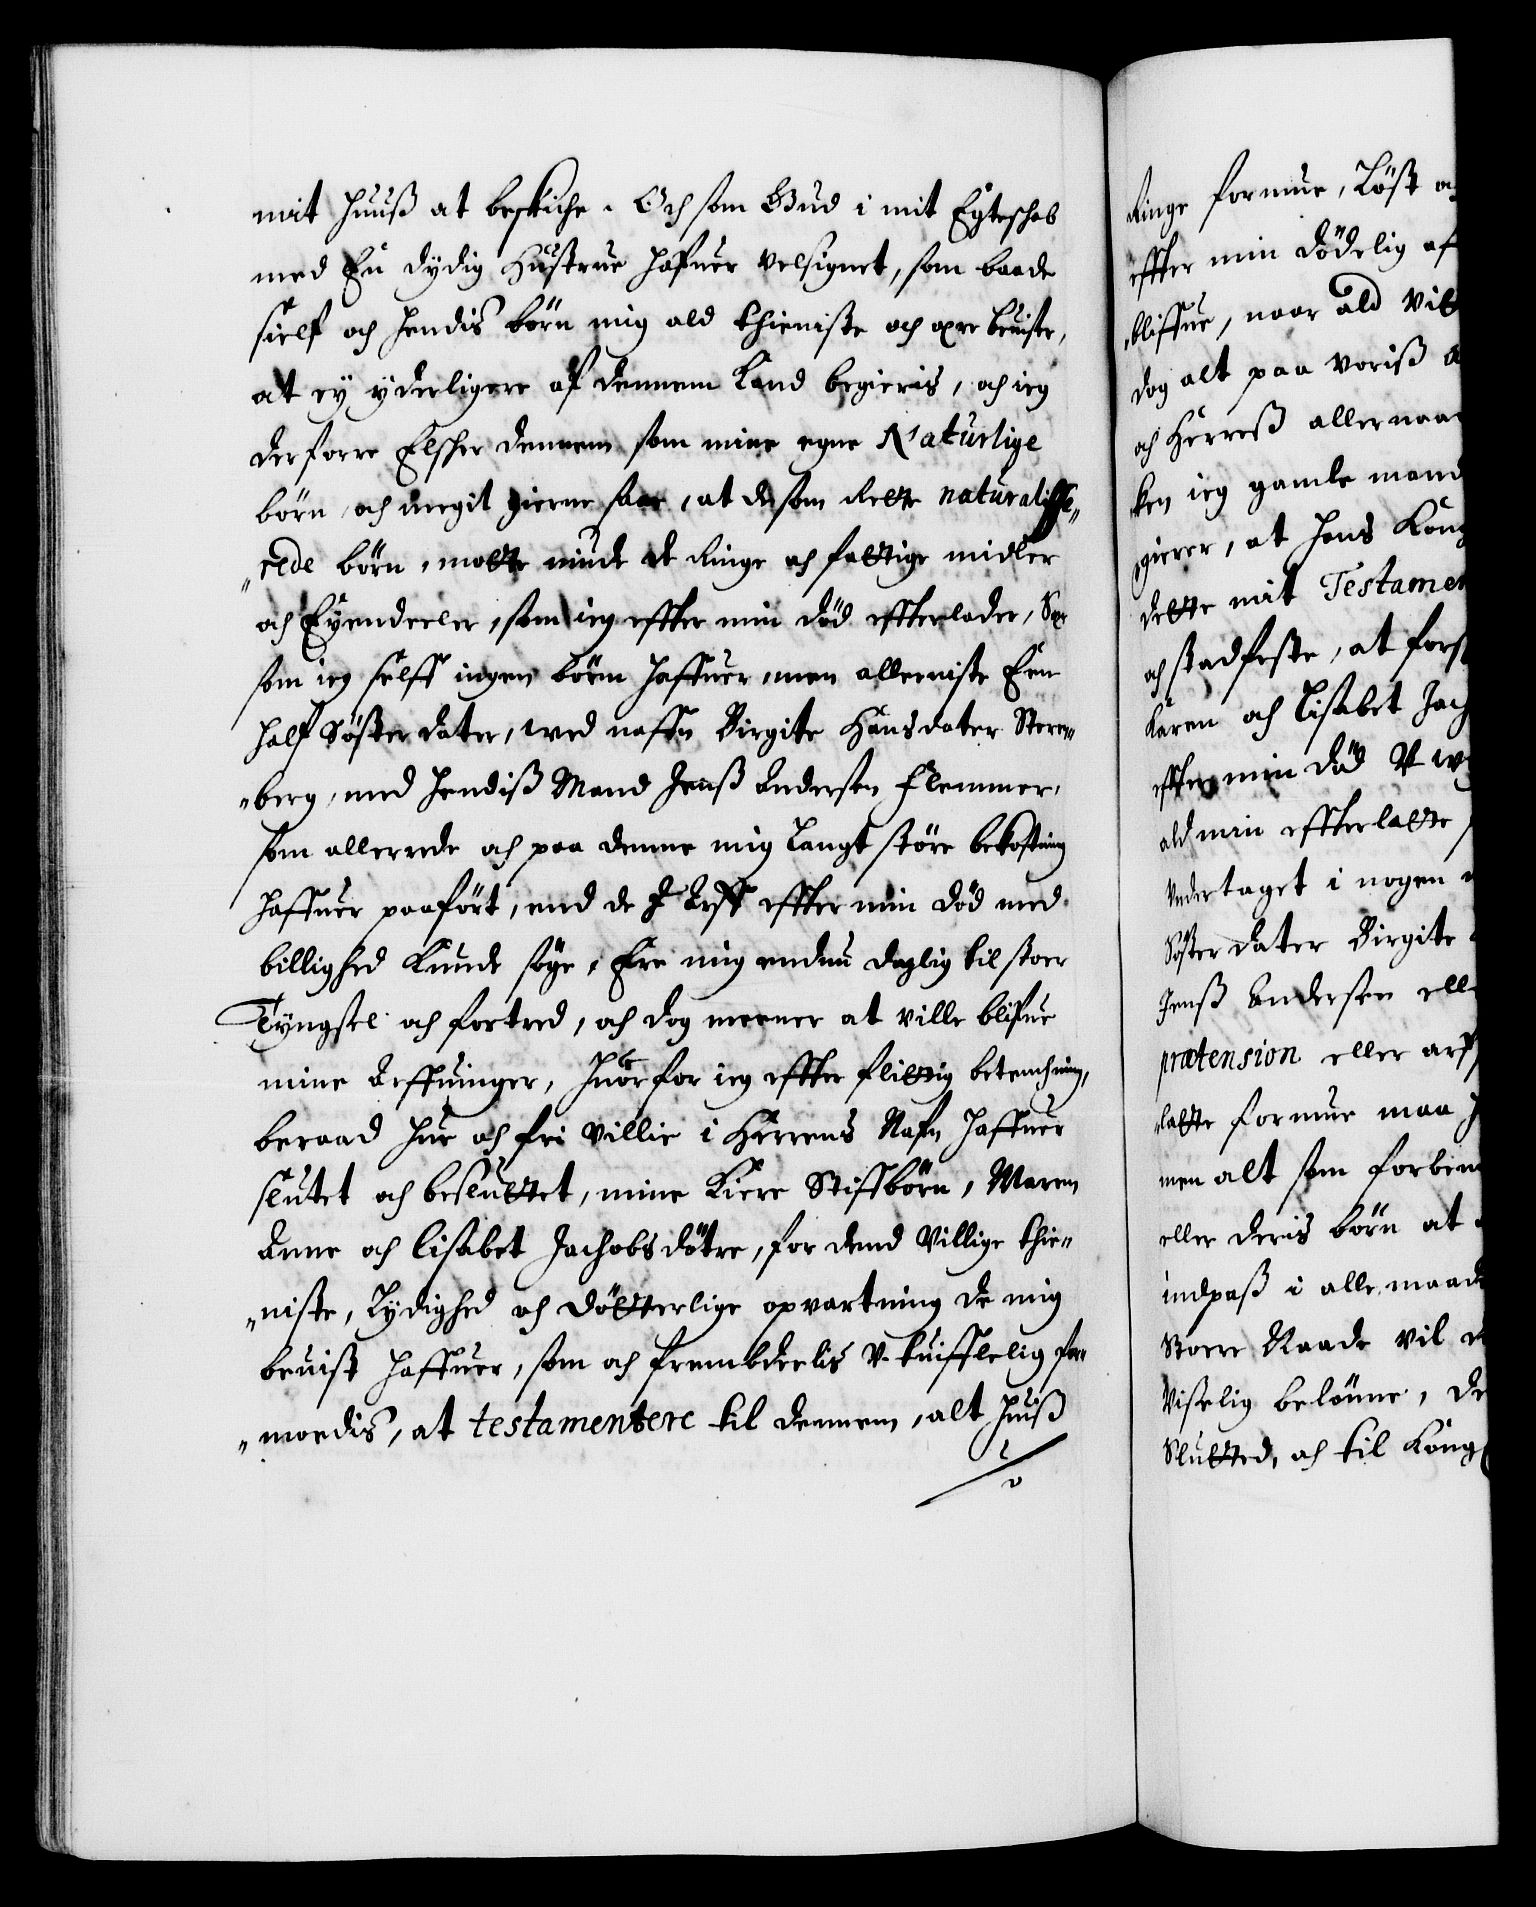 mit Huuß at beskiche. Och som Gud i mit Egteschab
med En dydig Hustrue hafuer velsignet, som baade
sielf och hendis börn mig ald thieniste och ære beuiste,
at ey yderligere af dennem kand begieris, och ieg
derforre Elsker dennem som mine egne Naturlige
börn och megit gierne saae, at de som rette naturalisse„
„rede börn, motte niude de Ringe och fattige midler
och Eyendeeler, som ieg effter min död effterlader, Saa
som ieg selff ingen börn haffuer, men alleeniste Een
half Söster dater, ved naffn Birgite Hansdater Steren„
„berg, med hendiß Mand Jenß Andersen Flemmer,
som allerrede och paa denne mig Langt störe bekostning
haffuer paafört, end de I Arff effter min död med
billighed kunde söge, Ere mig endnu daglig til stoer
Tyngsel och fortred, och dog meener at ville blifue
mine Arffuinger, huorfor ieg effter flittig betenchning,
beraad hue och fri villie i Herrens Nafn haffuer
slutet och besluttet, mine kiere Stiffbörn, Maren
Anne och Lisabet Jachobsdötre, for dend villige thie„
„niste, Lydighed och dötterlige opvartning de mig
beuist haffuer, som och frembdeelis V-tuifflelig for„
„moedis, at testamentere til dennem, alt huiß
Ringe formue, Löst
effter min dödelig af
„bliffue, naar ald
dog alt paa voriß
och Herreß allernaa
ken ieg gamle mand
gierer, at hans Kong
dette mit Testamen
och stadfeste, at fors
Karen och Lisabet Jach
effter min död
ald min effterlatte
Vndertaget i nogen
Söster dater Birgite
Jenß Andersen elle
prætension eller arf
„latte formue maa
men alt som forben
eller deris börn at
indpaß i alle maade
Stoere Naade vil
Viselig belönne, de
Slutted, och til Kong